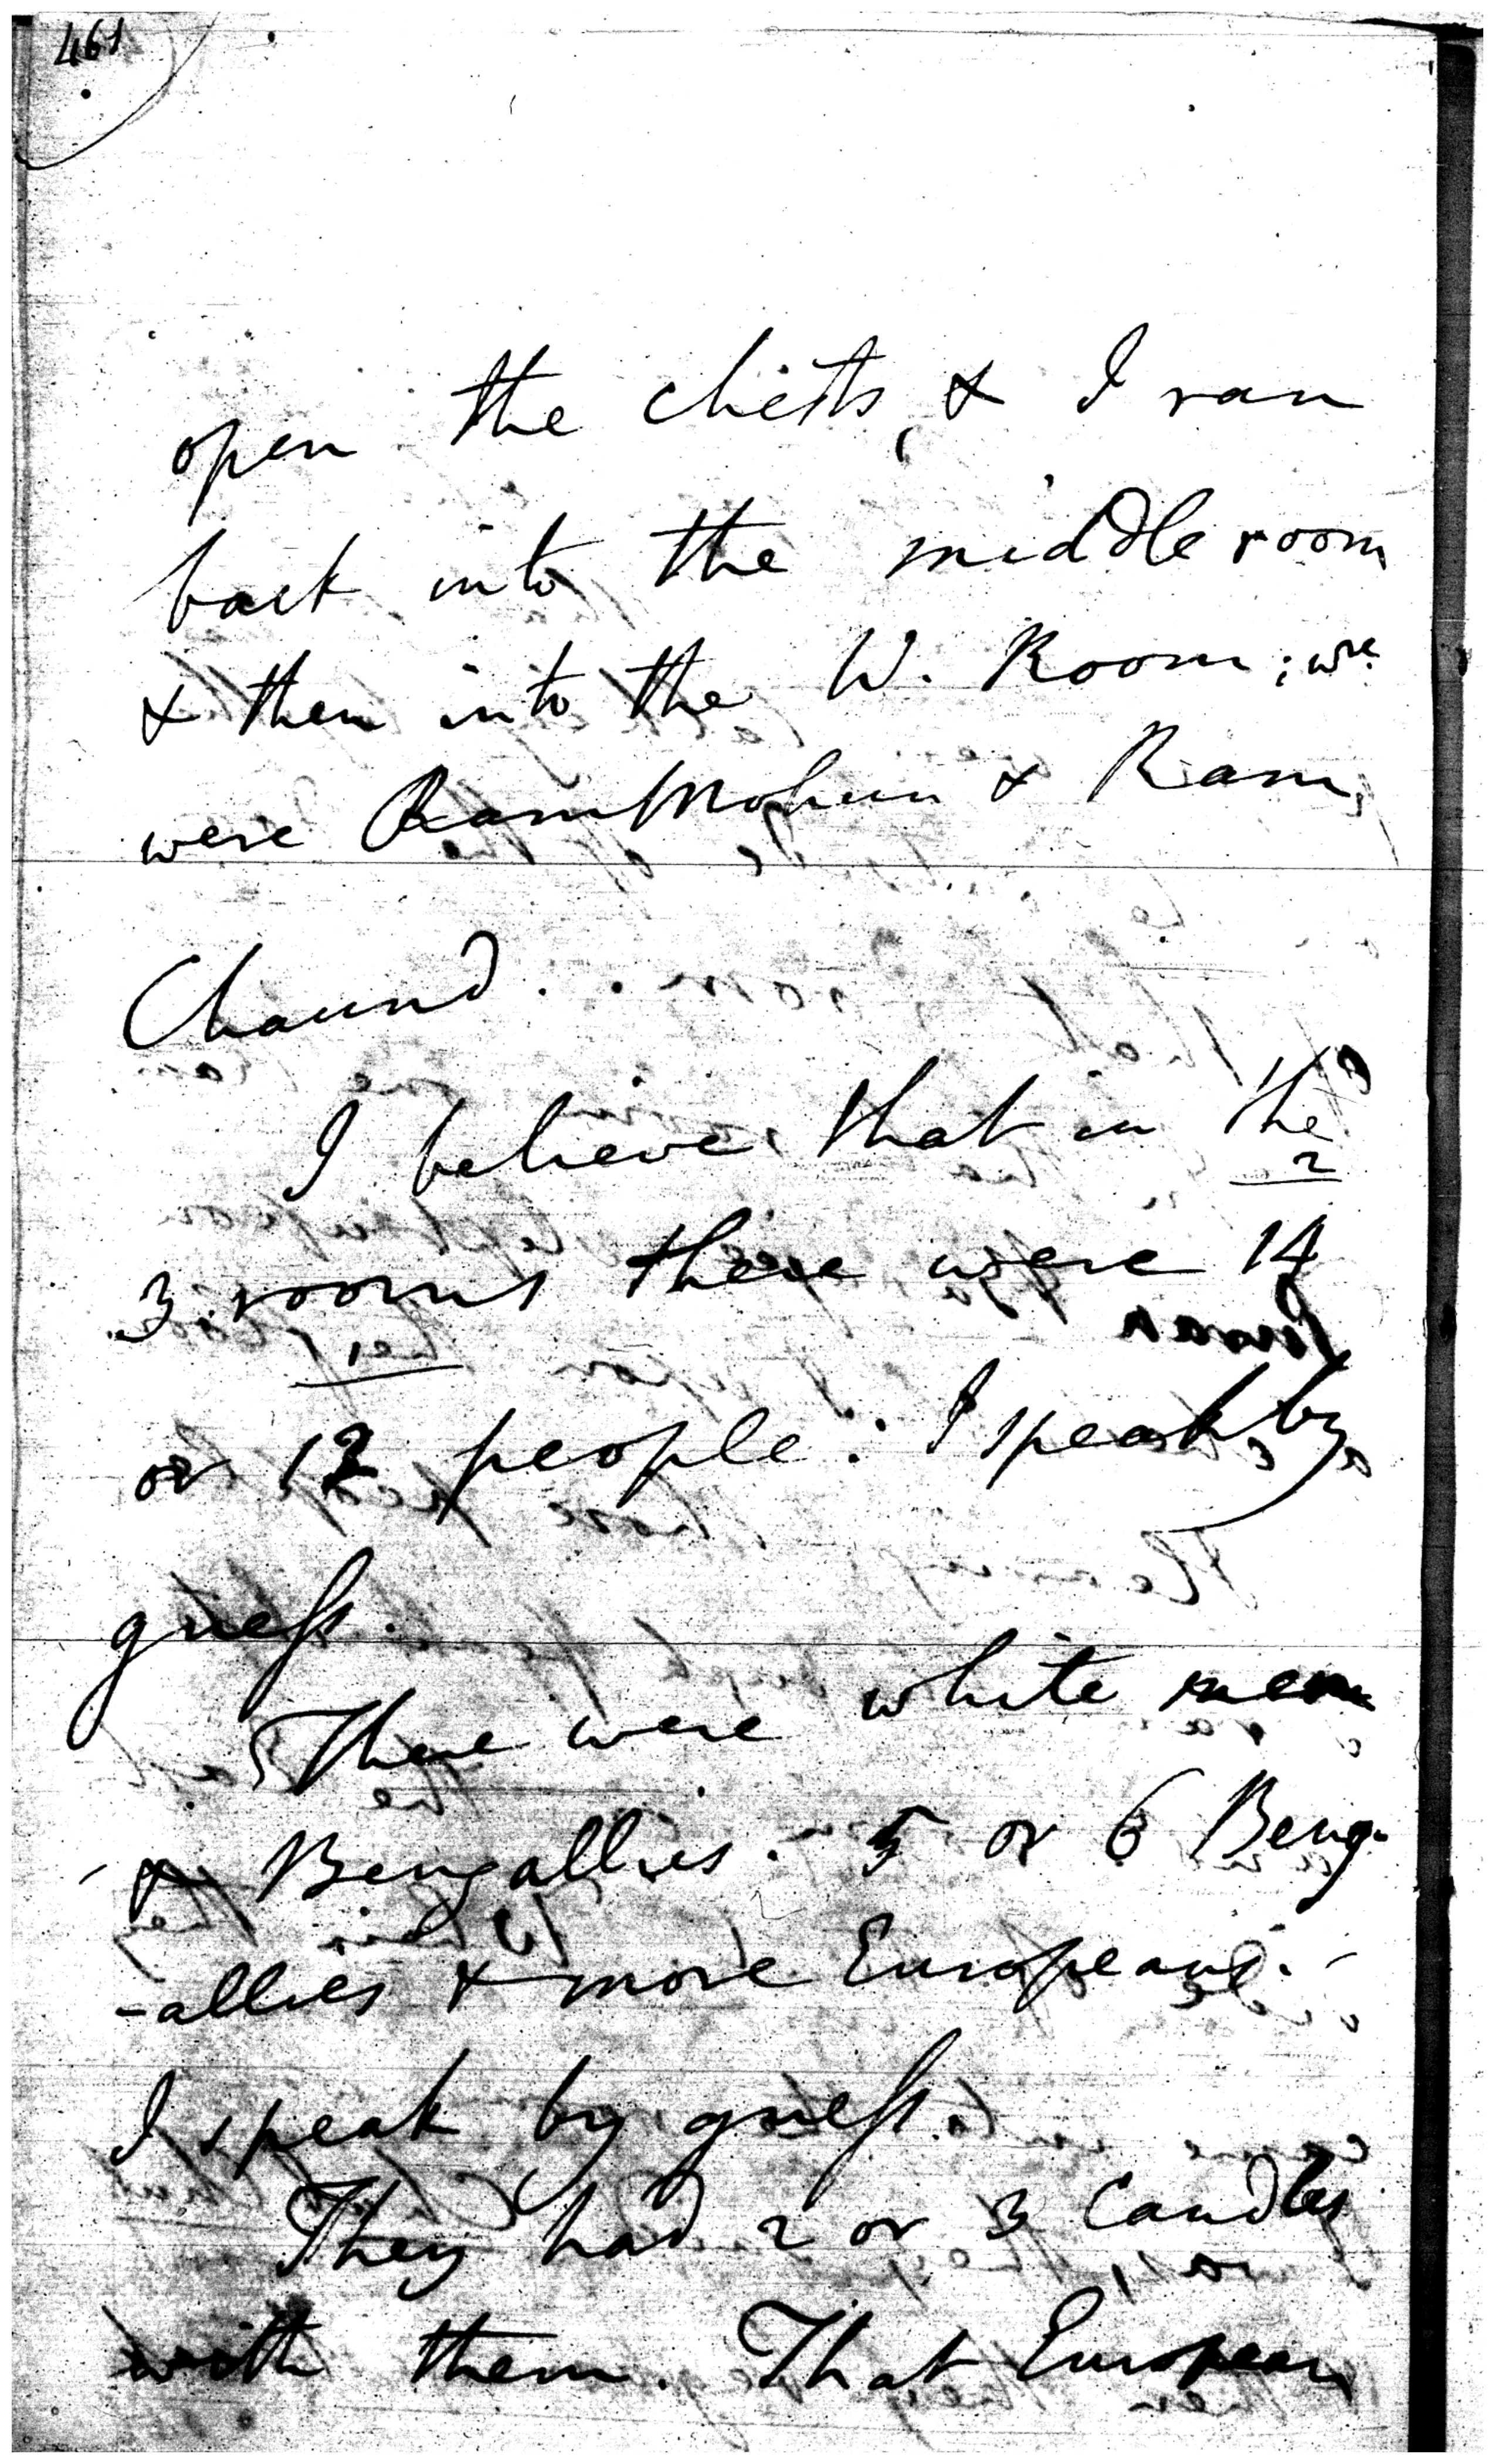 461
open the chests, & I ran
back into the middle room
& then into the W. Room; wre.
were RamMohun & Ram
Chaund.
I believe that in the
2
3 rooms there were 14
1
or 12 people: I speak by
guess.
There were white men
& Bengallies. 5 or 6 Beng-
-allies & more Europeans.
I speak by guess.
They had 2 or 3 Candles
with them. That European